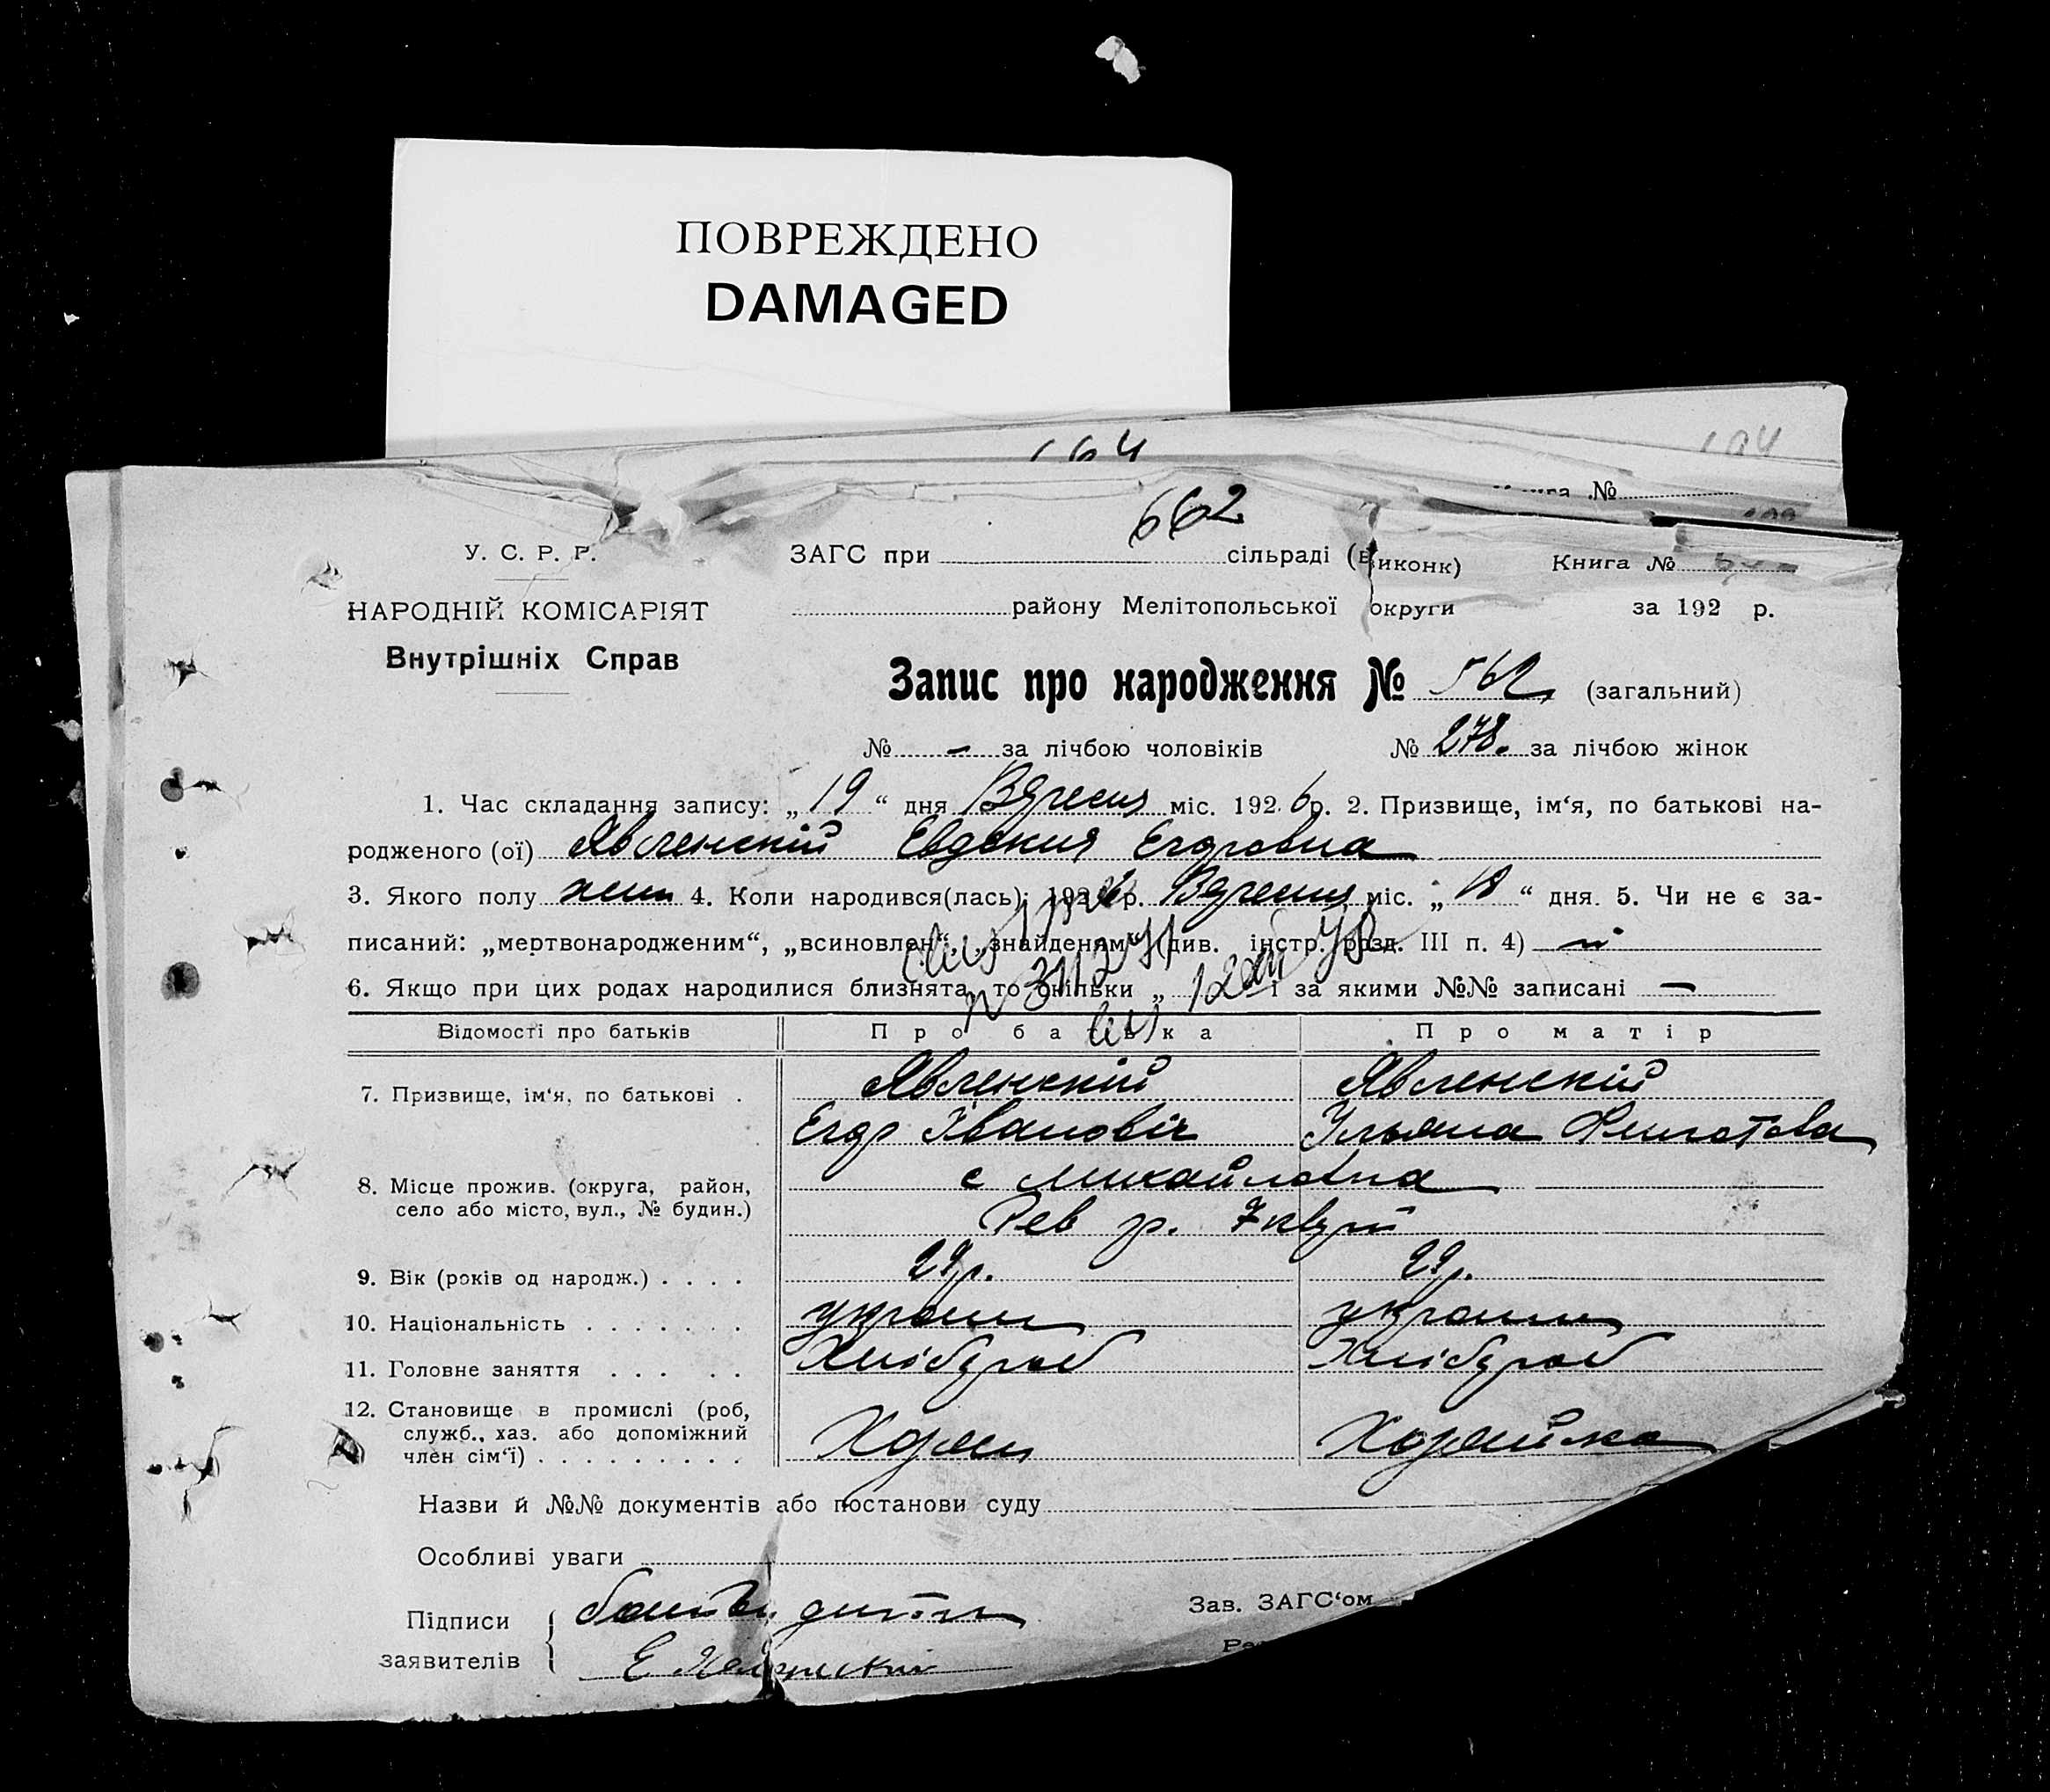 ПОВРЕЖДЕНО
DAMAGED
164
194
Книга №
662
У. С. Р. Р. ЗАГС при сільраді (виконк) Книга №
НАРОДНІЙ КОМІСАРІЯТ району Мелітопольської округи за 192 р.
Внутрішніх Справ
Запис про народження № 562 (загальний)
№ - за лічбою чоловіків № 278. за лічбою жінок
1. Час складання запису: „ 19 “ дня Вересня міс. 192 6 р. 2. Призвище, ім‘я, по батькові на-
родженого (ої) Явленскій Евдокия Егоровна
3. Якого полу жин 4. Коли народився(лась): 192 6 р. Вересня міс. „ 18 “ дня. 5. Чи не є за-
писаний: „мертвонародженим“, „всиновлен“, „знайденям“ (див. інстр. розд. III п. 4) ні
6. Якщо при цих родах народилися близнята, то скільки „ і за якими №№ записані —
Відомості про батьків Про батька Про матір
7. Призвище, ім‘я, по батькові . Явленскій Явленскій
Егор Івановіч Ульяна Филатова
8. Місце прожив. (округа, район, село або місто, вул., № будин.) с Михайловка
Рев р.
9. Вік (років од народж.) . . . . 29р. 29р.
10. Національність . . . . . . . украин украин
11. Головне заняття . . . . . Хлібороб Хлібороб
12. Становище в промислі (роб, служб., хаз. або допоміжний член сім‘ї) . . . . . . . . . Хозяин Хозяйка
Назви й №№ документів або постанови суду
Особливі уваги
Підписи заявителів { батько дитини Зав. ЗАГС‘ом
Е Явленский